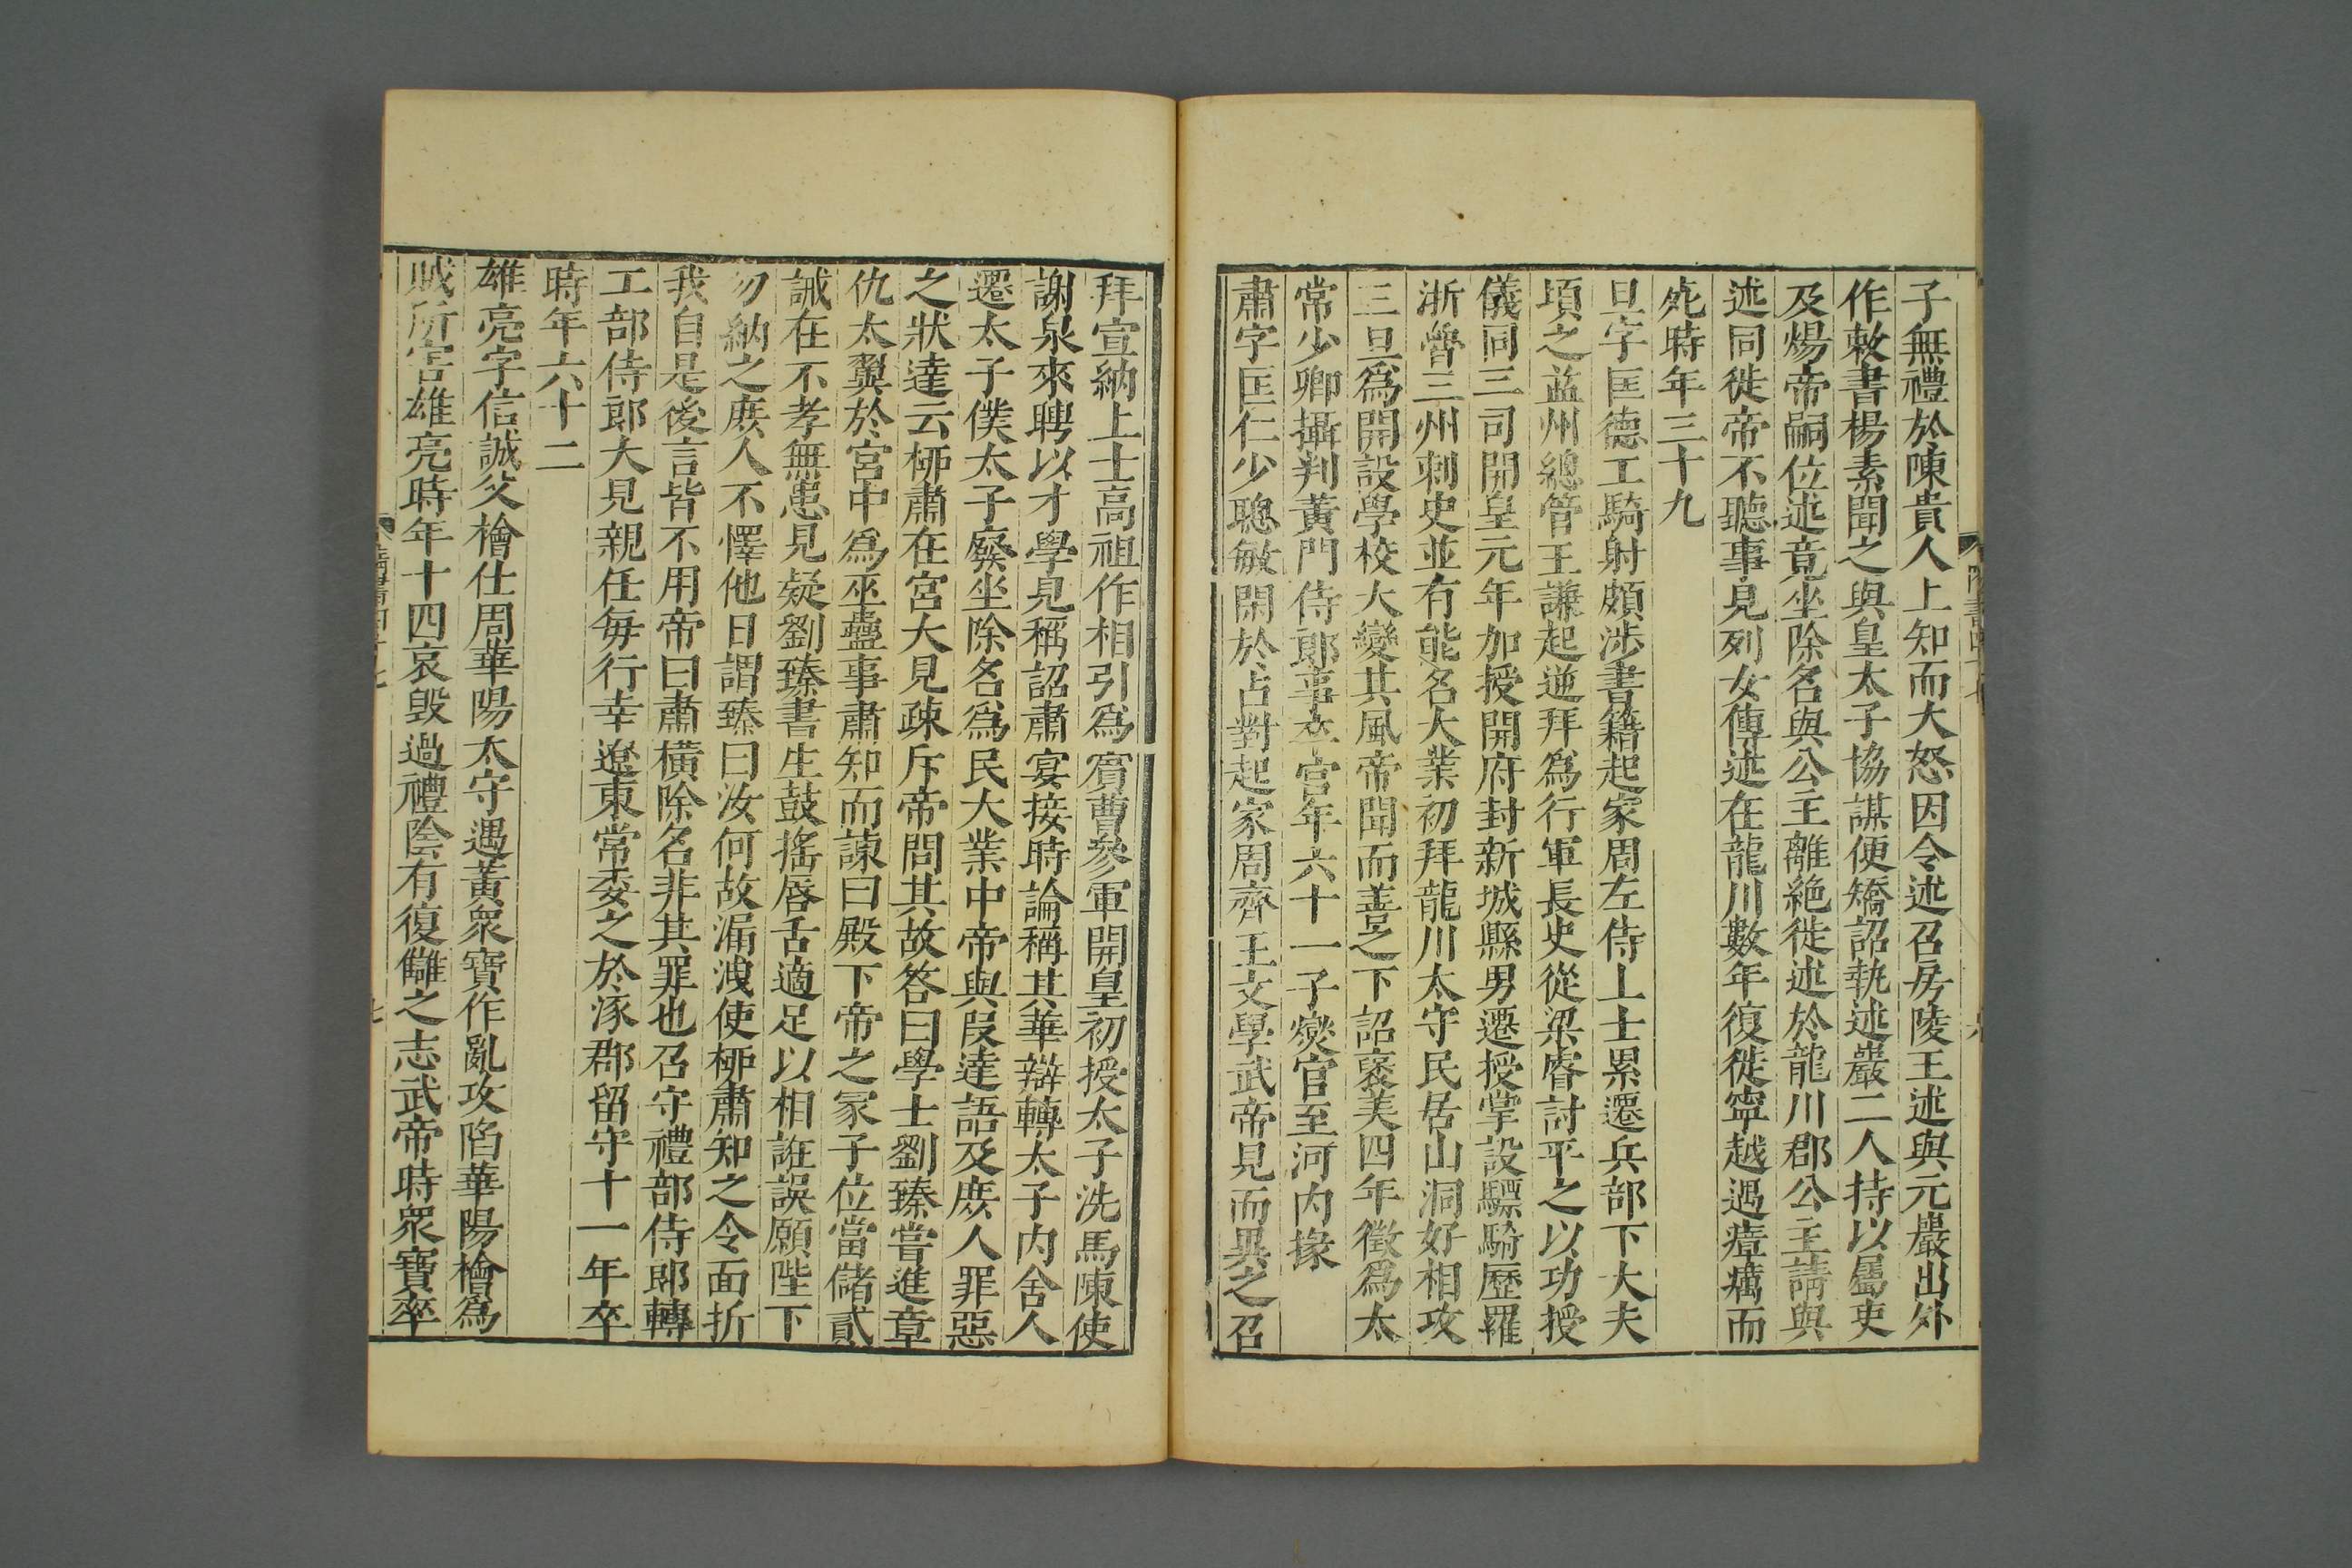 子無禮於陳貴人上知而大怒因令述召房陵王述與元巖出外
作敕書楊素聞之與皇太子協謀便矯詔執述巖二人持以屬吏
及煬帝嗣位述竟坐除名與公主離絶徙述於龍川郡公主請與
述同徙帝不聽事見列女傳述在龍川數年復徙寧越遇瘴癘而
死時年三十九
旦字匡德工騎射頗涉書籍起家周左侍上士累遷兵部下大夫
頃之益州總管王謙起逆拜爲行軍長史從梁睿討平之以功授
儀同三司開皇元年加授開府封新城縣男遷授掌設驃騎歷羅
浙魯三州刺史並有能名大業初拜龍川太守民居山洞好相攻
三旦爲開設學校大變其風帝聞而善之下詔褒美四年徵爲太
常少卿攝判黃門侍郎事卒官年六十一子燮官至河内掾
肅字匡仁少聰敏閑於占對起家周齊王文學武帝見而異之召
拜宣納上士高祖作相引爲賓曹參軍開皇初授太子洗馬陳使
謝泉來聘以才學見稱詔肅宴接時論稱其華辯轉太子内舍人
遷太子僕太子廢坐除名爲民大業中帝與段達語及庶人罪惡
之狀達云桺肅在宮大見疎斥帝問其故答曰學士劉臻嘗進章
仇太翼於宮中爲巫蠱事肅知而諫曰殿下帝之冢子位當儲貳
誡在不孝無患見疑劉臻書生鼓搖唇舌適足以相誑誤願陛下
勿納之庶人不懌他日謂臻曰汝何故漏洩使桺肅知之令面折
我自是後言皆不用帝曰肅橫除名非其罪也召守禮部侍郎轉
工部侍郎大見親任每行幸遼東常委之於涿郡留守十一年卒
時年六十二
雄亮字信誠父檜仕周華陽太守遇黃衆寶作亂攻陷華陽檜爲
賊所害雄亮時年十四哀毀過禮陰有復讎之志武帝時衆寶率